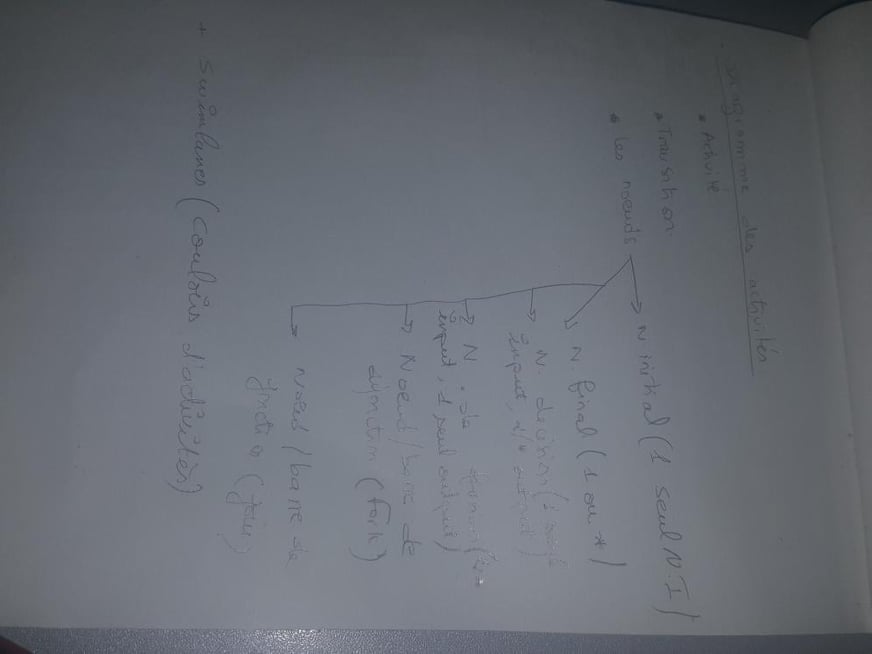 Diagramme des activités
Activité
Transition
les noeuds
N initial (1 seul N.I)
N. final (1 ou *)
N. decision (1
input, output)
N. de
input, 1 seul output)
Noeud / barre de
(fork)
Noeud / barre de
jonction (join)
+ Swimlanes (couloirs d'activités)